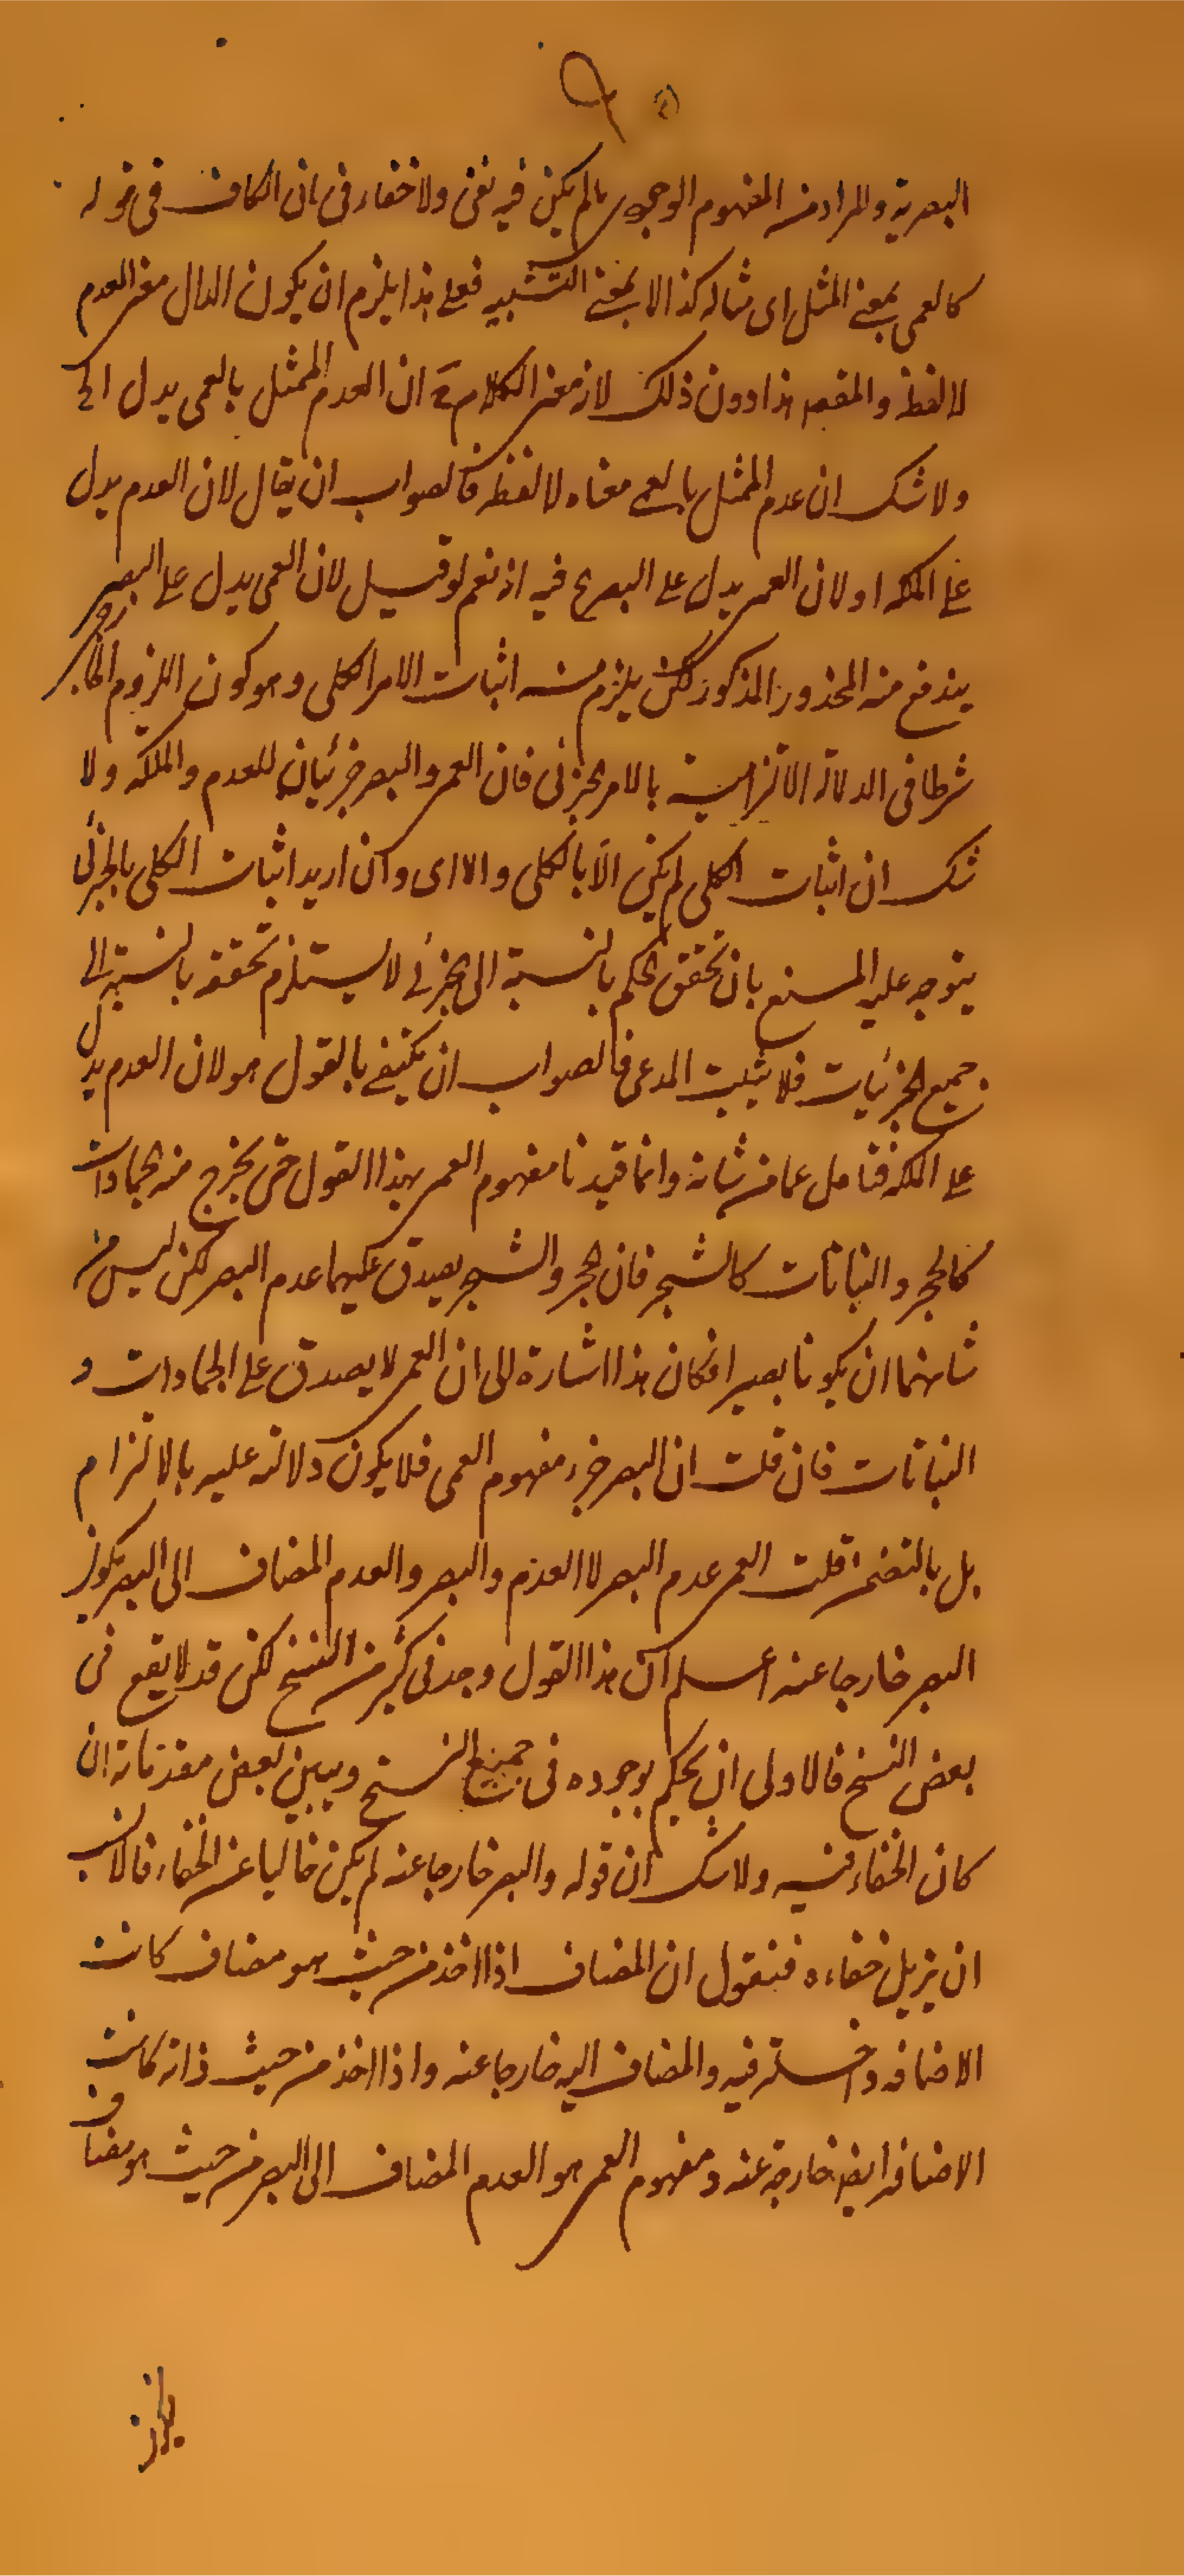 البصرية والمراد من المفهوم الوجودى ما لم يكن فيه نفى ولا خفاء فى ان الكاف فى قوله
كالعمى بمعنى المثل اى مثاله كذا لا بمعنى التشبيه فعلى هذا يلزم ان يكون الدال معنى العدم
لا لفظه والمقصد هذا دون ذلك لان معنى الكلام ح ان العدم الممثل بالعمى يدل الخ
ولا شك ان عدم الممثل بالعمى معناه لا لفظه فالصواب ان يقال لان العدم يدل
على الملكة او لان العمى يدل على البصر ح فيه اذ نعم لو قيل لان العمى يدل على البصر
يندفع منه المحذور المذكور لكن يلزم منه اثبات الامر الكلى وهو كون اللزوم الخارجى
شرطا فى الدلالة الالتزامية بالامر الجزئى فان العمى والبصر جزئيان للعدم والملكة ولا
شك ان اثبات الكلى لم يكن الا بالكلى والا اى وان اريد اثبات الكلى بالجزئى
يتوجه عليه المنع بان تحقق الحكم بالنسبة الى الجزئى لا يستلزم تحققه بالنسبة الى
جميع الجزئيات فلا يثبت المدعى فالصواب ان يكتفى بالقول هو لان العدم يدل
على الملكة فتامل عما من شانه وانما قيدنا مفهوم العمى بهذا القول حتى يخرج منه الجمادات
كالحجر والنباتات كالشجر فان الحجر والشجر يصدق عليهما عدم البصر لكن ليس من
شانهما ان يكونا بصيرا فكان هذا اشارة الى ان العمى لا يصدق على الجمادات و
النباتات فان قلت ان البصر جزء مفهوم العمى فلا يكون دلالته عليه بالالتزام
بل بالتضمن قلت العمى عدم البصر لا العدم والبصر والعدم المضاف الى البصر يكون
البصر خارجا عنه اعلم ان هذا القول وجد فى كثير من النسخ لكن قد لا يقع فى
بعض النسخ فالاولى ان يحكم بوجوده فى جميع النسخ ويبين بعض مقدماته ان
كان الخفاء فيه ولا شك ان قوله والبصر خارجا عنه لم يكن خاليا عن الخفاء فالانسب
ان يزيل خفاءه فنقول ان المضاف اذا اخذ من حيث هو مضاف كانت
الاضافة داخلة فيه والمضاف اليه خارجا عنه واذا اخذ من حيث ذاته كانت
الاضافة ايضا خارجة عنه ومفهوم العمى هو العدم المضاف الى البصر من حيث هو مضاف